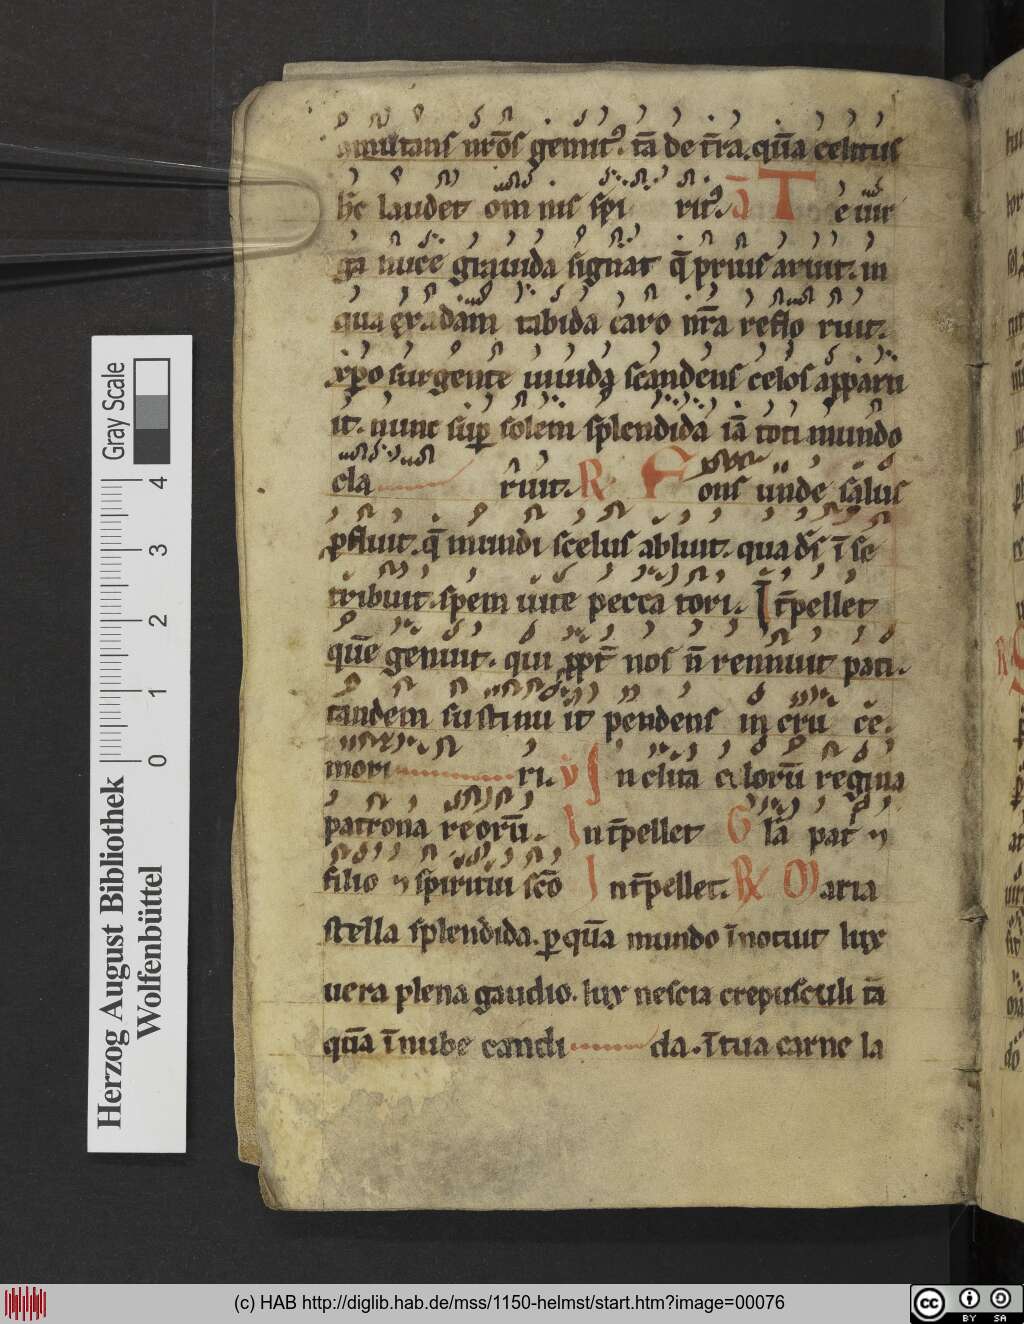 mutans nr̄os gemit⁹. tā de t̄ra. quā celitus
h̄c laudet omnis spi rit⁹. v̄ Te uir
ga nuce grauida signat q̄ prius aruit. in
qua ęradam tabida caro nr̄a reflo ruit.
xp̄o surgente uiuida scandens celos apparu
it. nunc sup̱ solem splendida iā toti mundo
cla ruit. R Fons unde salus
p̱fluit. q̄ mundi scelus abluit. qua d̄s ī se
tribuit. spem uite pecca tori. Int̄pellet
quē genuit. qui p̱p̱t̄ nos n̄ rennuit pati.
tandem sustinu it pendens in cru ce.
mori ri. v̄ Inclita celorū regina
patrona reorū. Int̄pellet Glā pat̄ ⁊
filio ⁊ spiritui scō Int̄pellet. R Maria
stella splendida. p̱ quā mundo īnotuit lux
uera plena gaudio. lux nescia crepusculi tā
quā ī nube candi da. ī tua carne la
Gray Scale
4
3
2
1
0
Herzog August Bibliothek
Wolfenbüttel
(c) HAB http://diglib.hab.de/mss/1150-helmst/start.htm?image=00076
cc BY SA